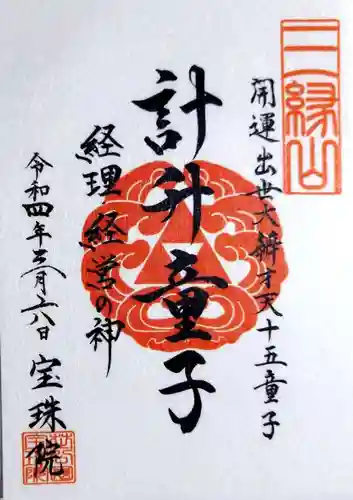 三縁山
開運出世大辨才天十五童子
計升童子
経理経営の神
令和四年三月二八日
宝珠院